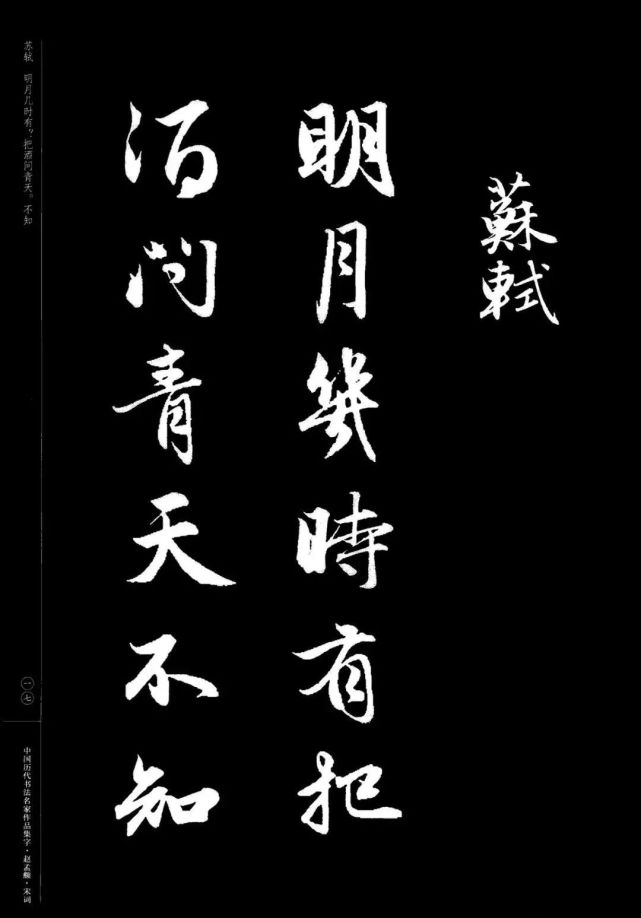 蘇軾
明月幾時有把
酒問青天不知
苏轼 明月几时有？把酒问青天。不知
一七
中国历代书法名家作品集字·赵孟頫·宋词